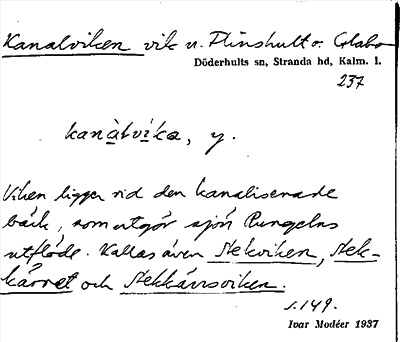 Kanalviken vik u. Flinshult o. Glabo
Döderhults sn, Stranda hd, Kalm. l.
237
kanàlvíka, y.
Viken ligger vid den kanaliserade
bäck, som utgör sjön Rungelns
utflöde. Kallas även Stekviken, Stek-
kärret och Stekkärrsviken.
s. 149.
Ivar Modéer 1937